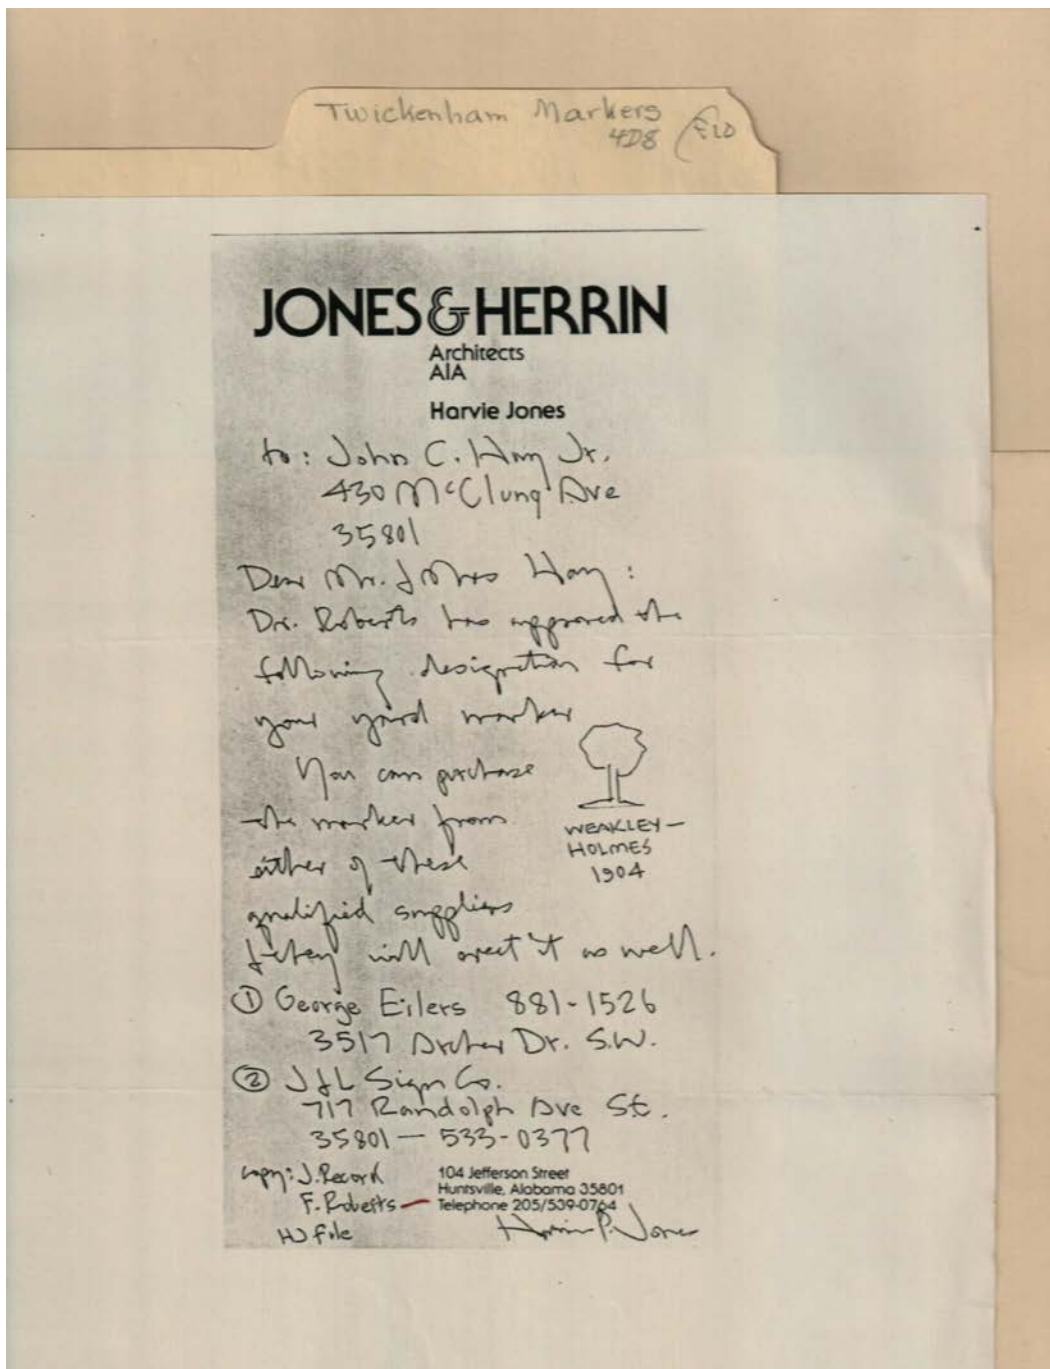 Twickenham Markers
4D8
JONES & HERRIN
Architects
AIA
Harvie Jones
to: John C. Hay Jr.
430 McClung Ave
35801
Dear Mr. & Mrs Hay:
Dr. Roberts has approved the
following designation for
your yard marker
You can purchase
the marker from
either of these
qualified suppliers
& they will erect it as well.
WEAKLEY-
HOLMES
1904
① George Eilers 881-1526
3517 Archer Dr. S.W.
② J&L Sign Co.
717 Randolph Ave SE.
35801 - 533-0377
copy: J. Record
F. Roberts
HJ file
104 Jefferson Street
Huntsville, Alabama 35801
Telephone 205/539-0764
Harvie P. Jones